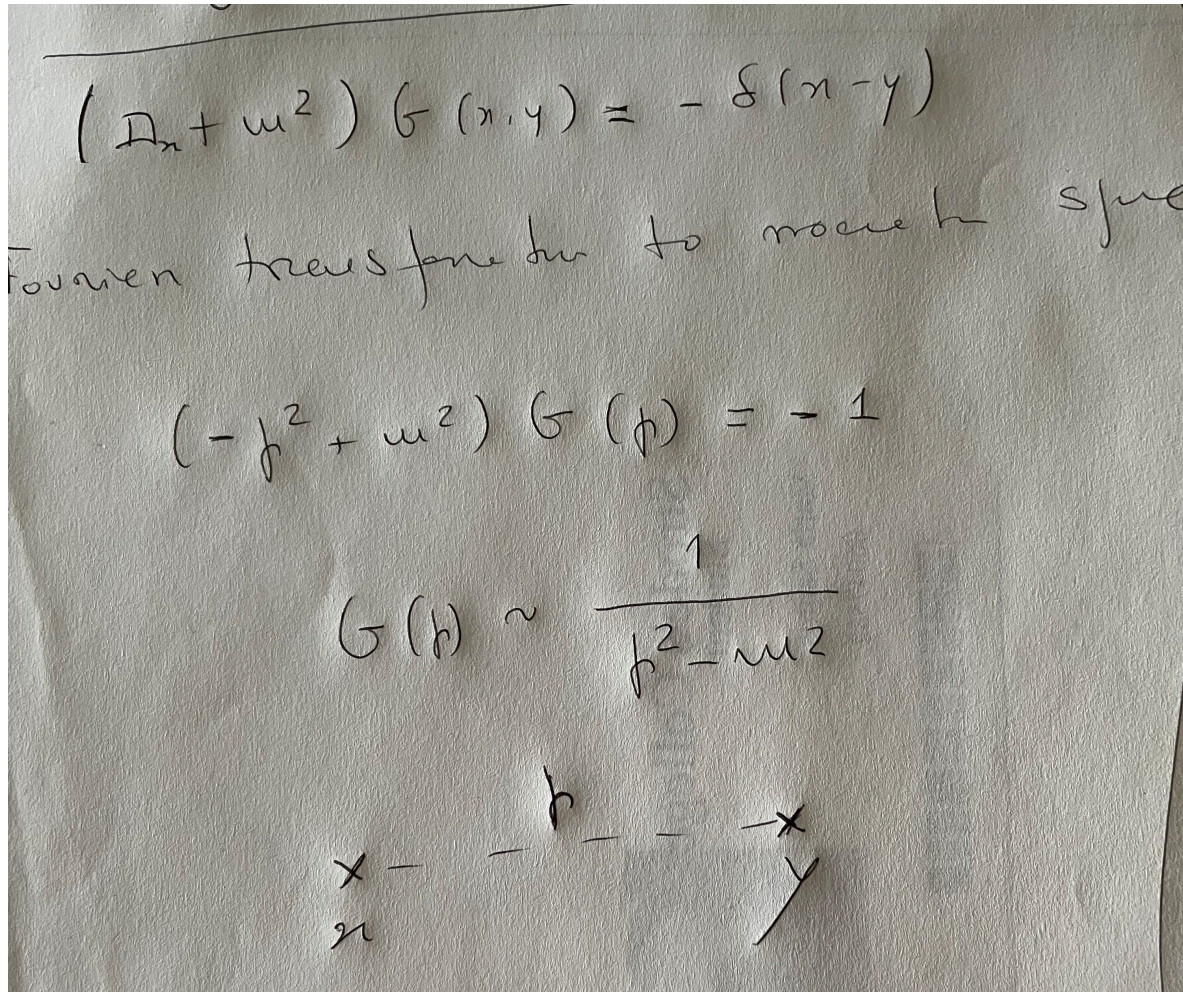 (□ₓ + m²) G (x,y) = - δ(x-y)
Fourier transformation to momentum space
(-p² + m²) G (p) = - 1
G(p) ~ 1 / (p² - m²)
p
x - - - - - x
x y